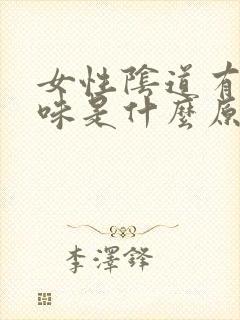 女性陰道有
味是什麼原
李澤鋒